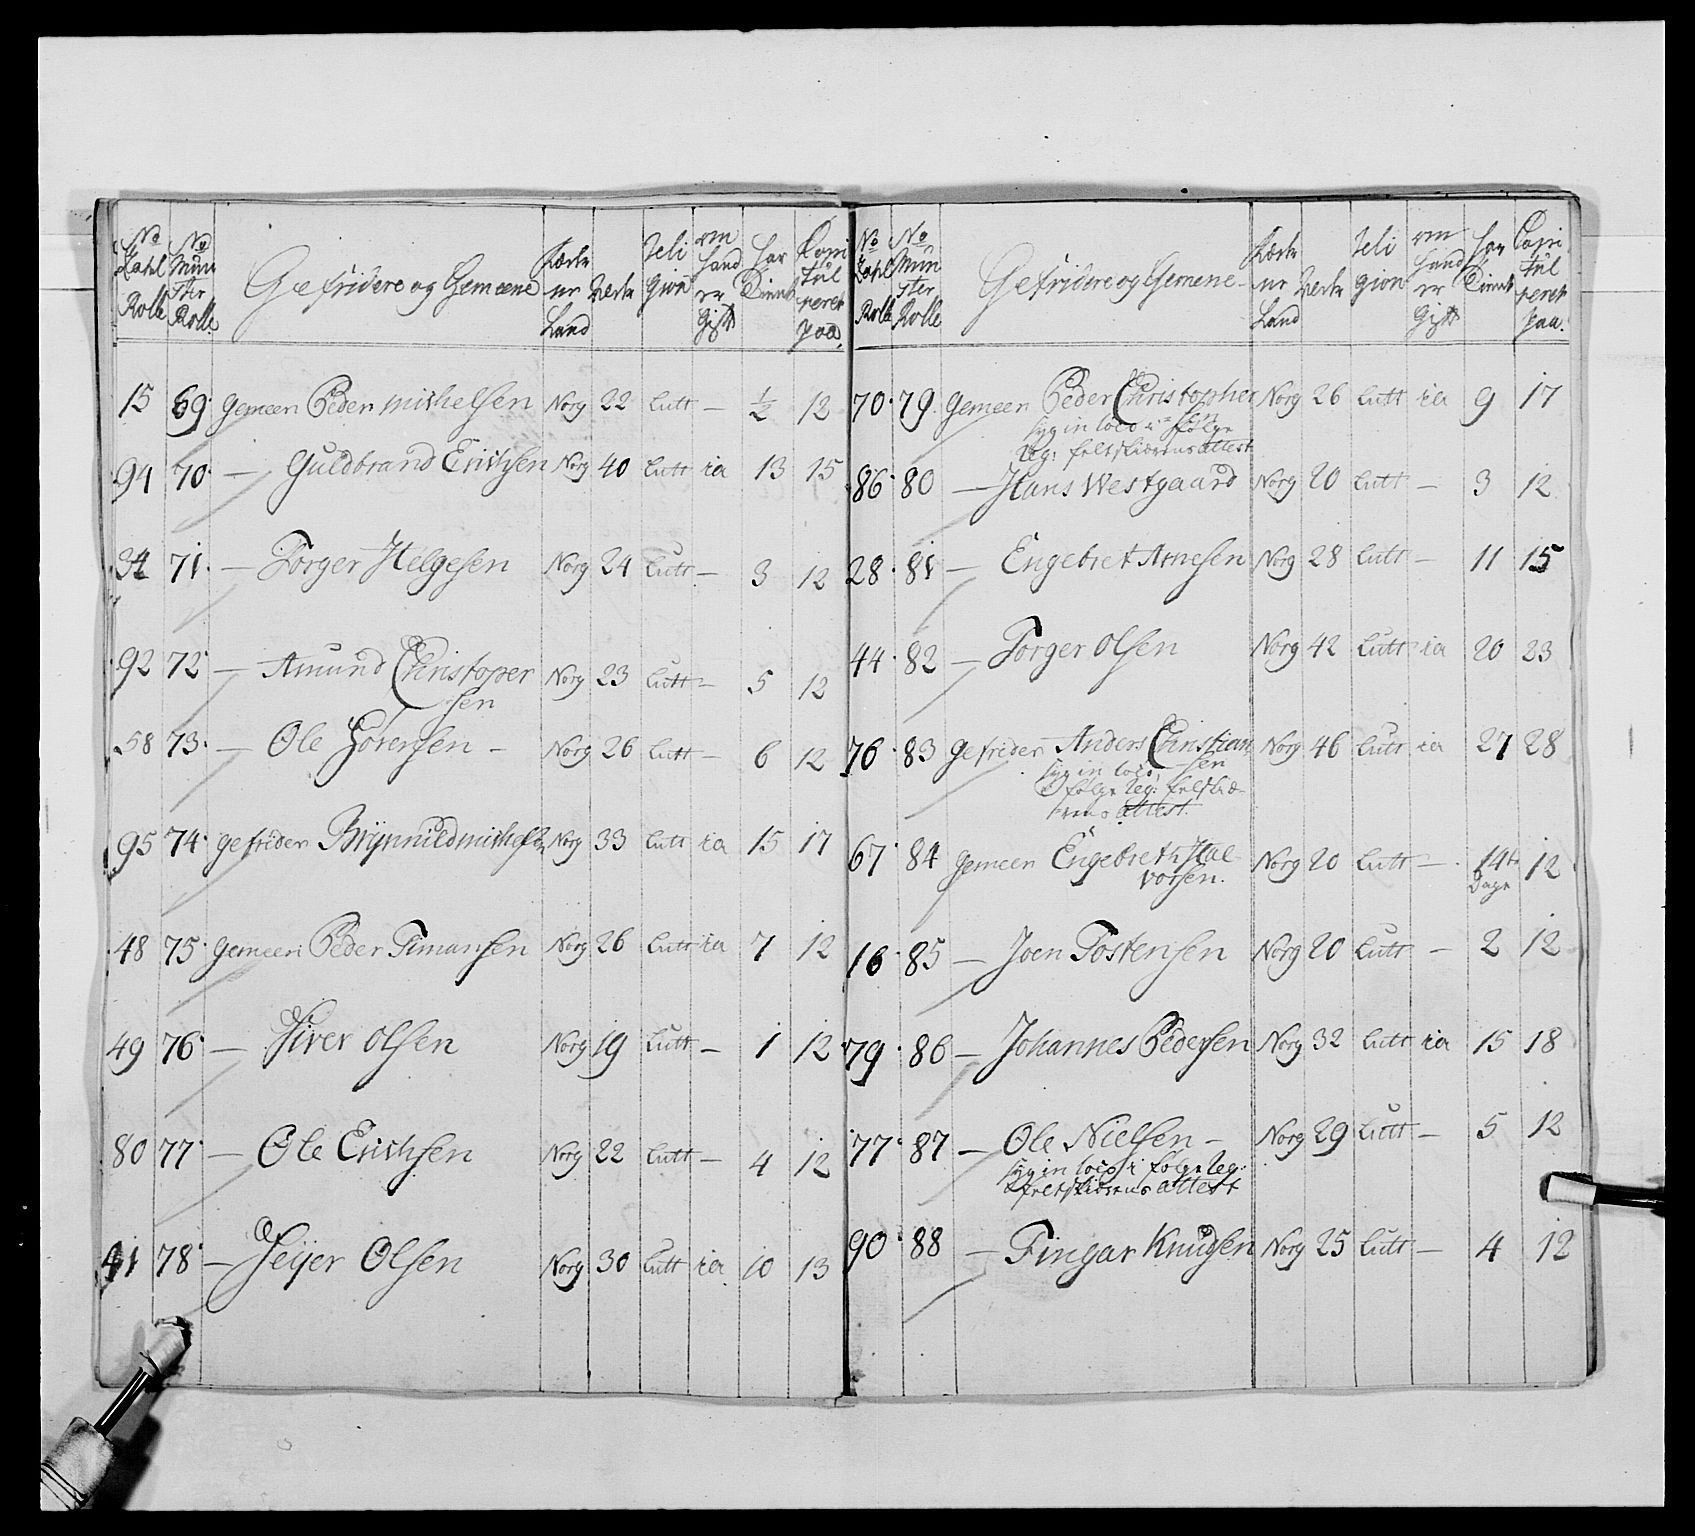 No Zahl Rolle | No Mun ster Rolle | Gefridere og Gemeene | Land | Reli gion | om hand er Gift | har Dient | Capi tul peret paa.
15 69 gemeen Peder michelsen Norg 22 Lutt — ½ 12
94 70 — Guldbrand Erichsen Norg 40 Lutt ia 13 15
34 71 — Torger Helgesen Norg 24 Lutt — 3 12
92 72 — Amund Christoper Norg 23 Lutt — 5 12
sen
58 73 — Ole Sörensen — Norg 26 Lutt — 6 12
95 74 gefrider Brynnild michelsen Norg 33 Lutt ia 15 17
48 75 gemeen Peder Timansen Norg 26 Lutt ia 7 12
49 76 — Siver Olsen Norg 19 Lutt — 1 12
80 77 — Ole Erichsen Norg 22 Lutt — 4 12
41 78 — Seijer Olsen Norg 30 Lutt ia 10 13
No Zahl Rolle | No Mun ster Rolle | Gefridere og Gemene | Land | Reli gion | om hand er Gift | har Dient | Capi tul peret paa.
70 79 gemeen Peder Christopher Norg 26 Lutt ia 9 17
sen
syg in loco i følge
Reg: feltskierens attest
86 80 — Hans Westgaard Norg 20 Lutt — 3 12
28 81 — Engebret Arnesen Norg 28 Lutt — 11 15
44 82 — Torger Olsen Norg 42 Lutt ia 20 23
76 83 gefrider Anders Christian Norg 46 Lutt ia 27 28
sen
syg in loco
i følge Reg: feltskie-
rens attest.
67 84 gemeen Engebreth Hal- Norg 20 Lutt — 14 12
vorsen. Dage
16 85 — Joen Tostensen Norg 20 Lutt — 2 12
79 86 — Johannes Pedersen Norg 32 Lutt ia 15 18
77 87 — Ole Nielsen — Norg 29 Lutt — 5 12
syg in loco i følge Reg:
feltskierens attest
90 88 — Fingar Knudsen Norg 25 Lutt — 4 12